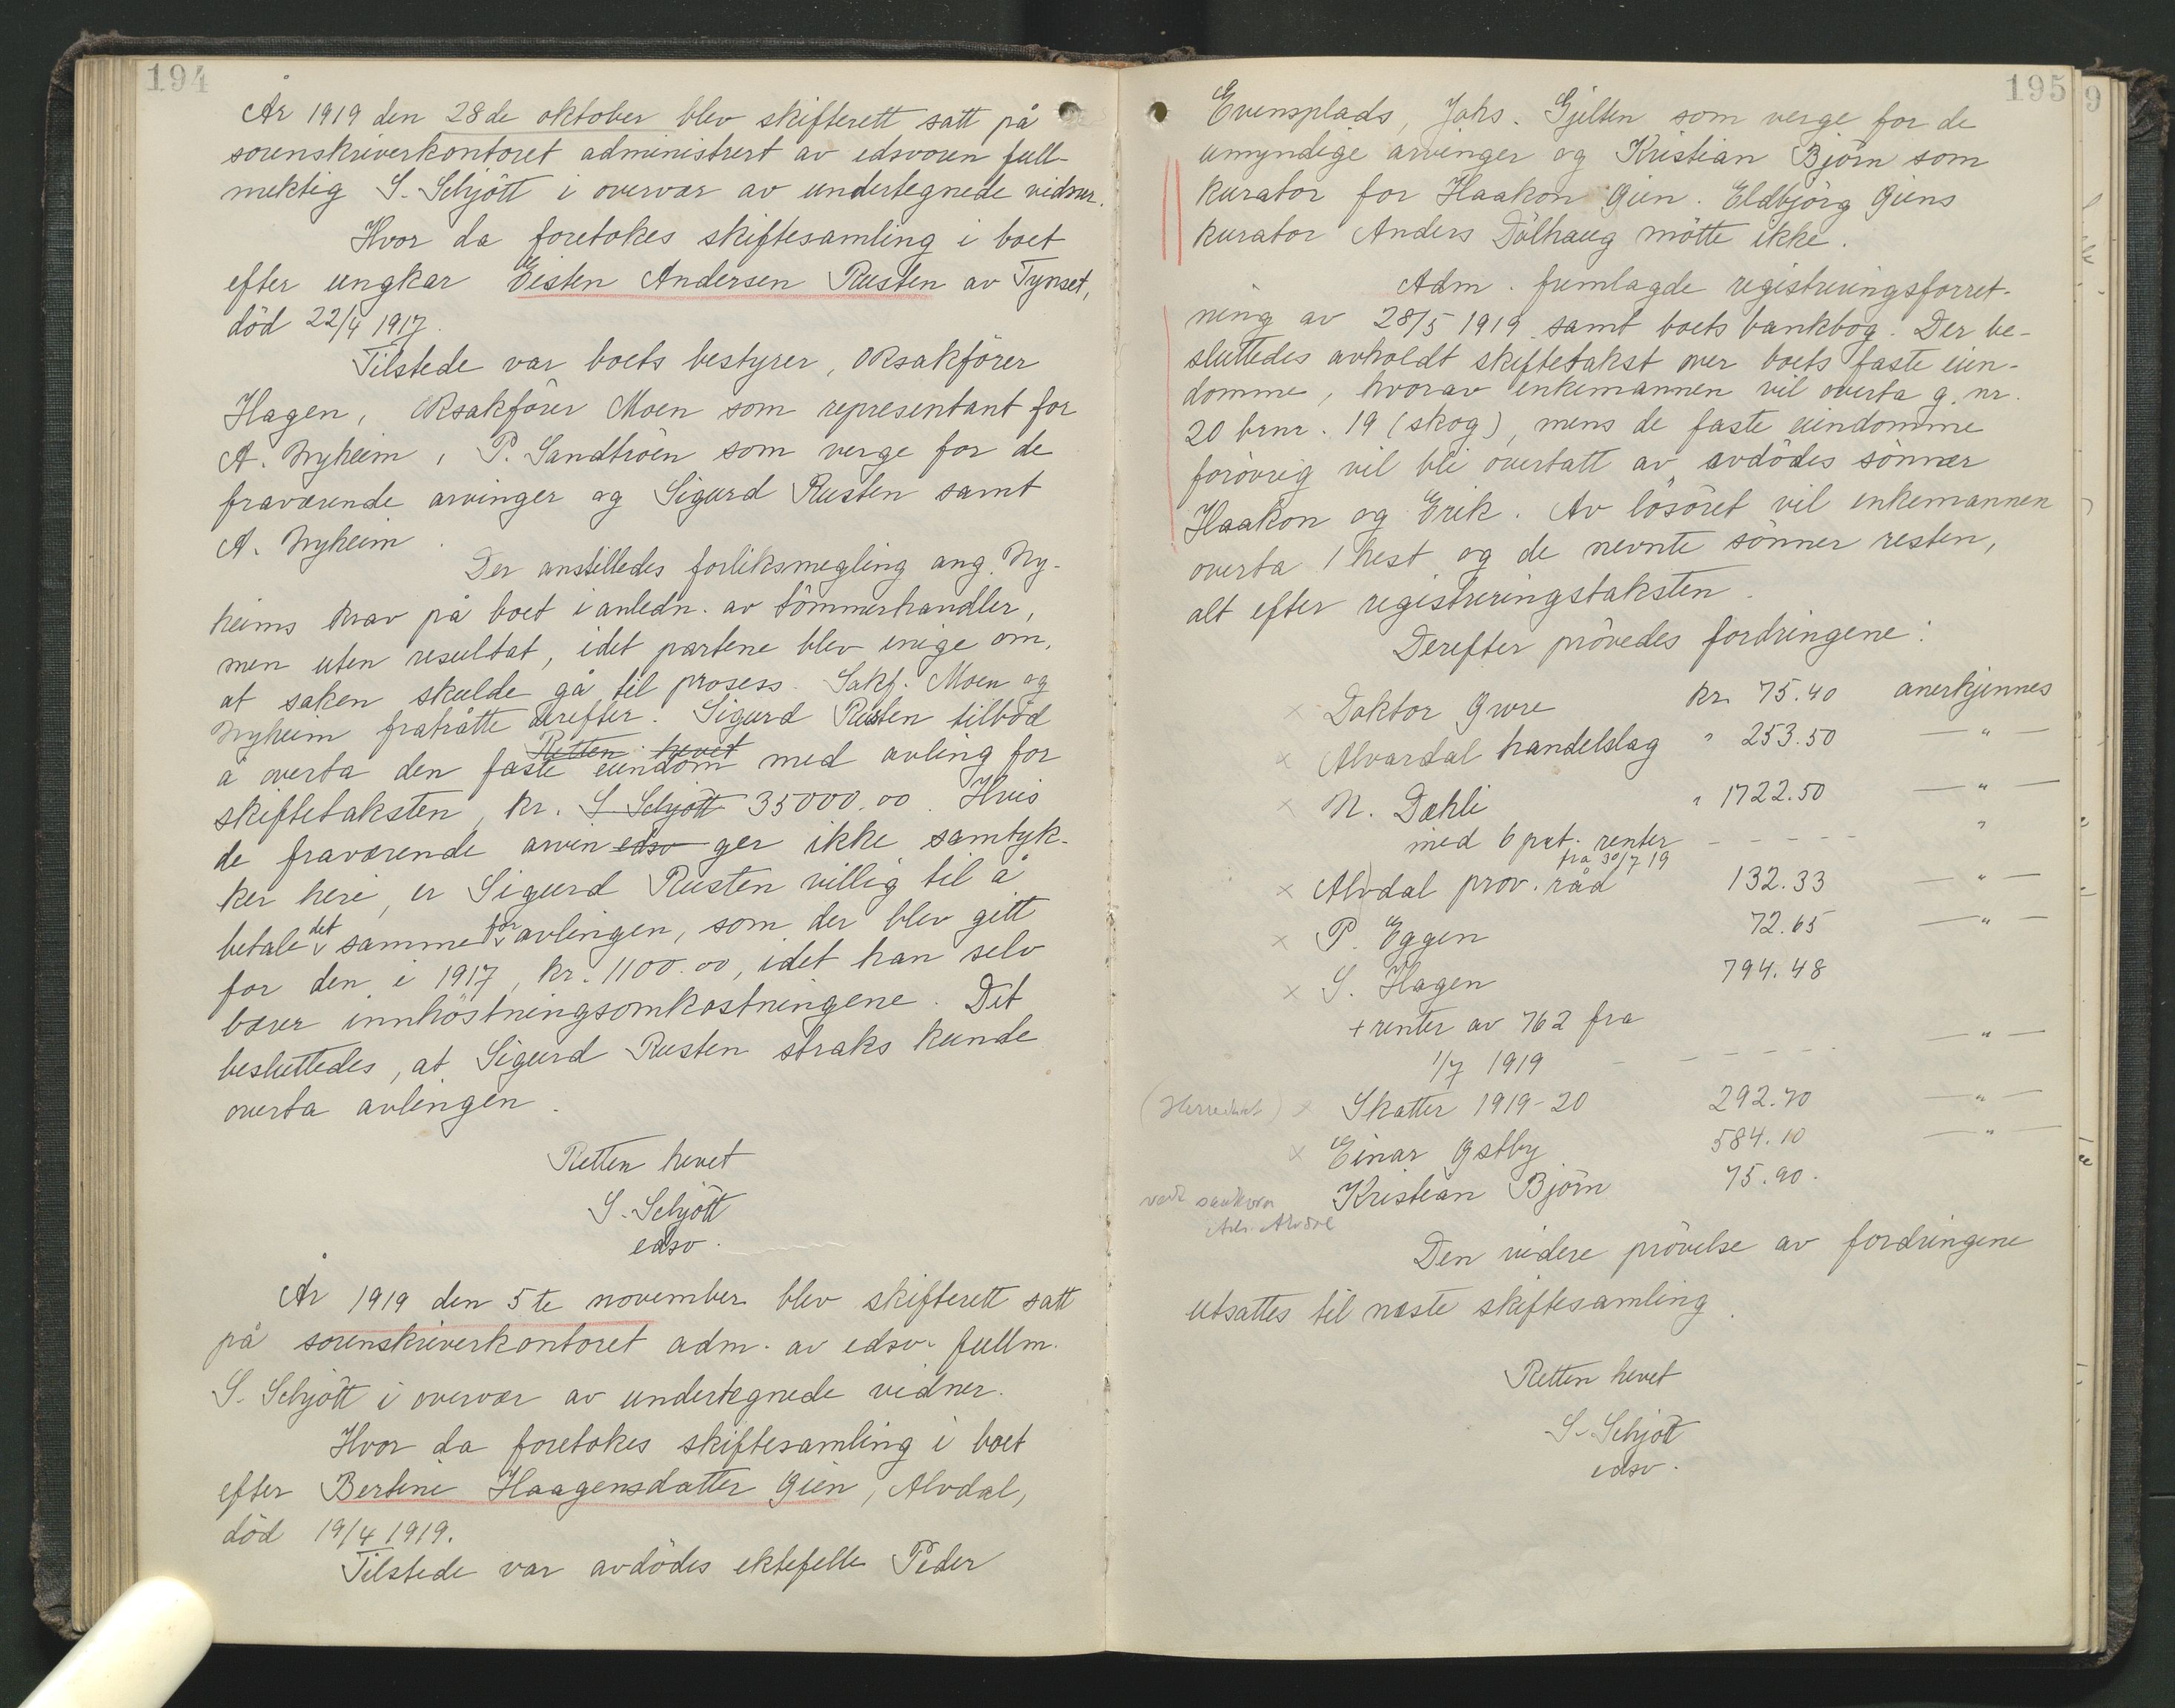 194
År 1919 den 28de oktober blev skifterett satt på
sorenskriverkontoret administrert av edsvoren full-
mektig S. Schjött i overvær av undertegnede vidner.
Hvor da foretokes skiftesamling i boet
efter ungkar Eisten Andersen Rusten av Tynset,
död 22/4 1917.
Tilstede var boets bestyrer, ORsakförer
Hagen, ORsakförer Moen som representant for
A. Nyheim, P. Sandtröen som verge for de
fraværende arvinger og Sigurd Rusten samt
A. Nyheim.
Der anstilledes forliksmegling ang. Ny-
heims krav på boet i anledn. av tömmerhandler,
men uten resultat, idet partene blev enige om,
at saken skulde gå til prosess. Sakf. Moen og
Nyheim fratråtte derefter. Sigurd Rusten tilböd
Retten hevet
å overta den faste eiendom med avling for
skiftetaksten, kr. S. Schjött 35000.00. Hvis
de fraværende arvin edsv ger ikke samtyk-
ker heri, er Sigurd Rusten villig til å
betale det samme for avlingen, som der blev gitt
for den i 1917, kr. 1100.00, idet han selv
bærer innhöstningsomkostningene. Det
besluttedes, at Sigurd Rusten straks kunde
overta avlingen.
Retten hevet
S. Schjött
edsv.
År 1919 den 5te november blev skifterett satt
på sorenskriverkontoret adm. av edsv. fullm.
S. Schjött i overvær av undertegnede vidner.
Hvor da foretokes skiftesamling i boet
efter Bertine Haagensdatter Gien, Alvdal,
död 19/4 1919.
Tilstede var avdödes ektefelle Peder
195
9
Evensplads, Johs. Gjelten som verge for de
umyndige arvinger og Kristian Björn som
kurator for Haakon Gien. Eldbjörg Giens
kurator Anders Dölhaug mötte ikke.
Adm. fremlagde registreringsforret-
ning av 28/5 1919 samt boets bankbog. Der be-
sluttedes avholdt skiftetakst over boets faste eien-
domme, hvorav enkemannen vil overta g. nr.
20 brnr. 19 (skog), mens de faste eiendomme
forövrig vil bli overtatt av avdödes sönner
Haakon og Erik. Av lösöret vil enkemannen
overta 1 hest og de nevnte sönner resten,
alt efter registreringstaksten.
Derefter prövedes fordringene:
x Doktor Gwre kr. 75.40 anerkjennes
x Alvardal handelslag " 253.50 — " —
x N. Dæhli " 1722.50 — " —
med 6 pct. renter - - - - "
fra 30/7 19
x Alvdal prov. råd 132.33 — " —
x P. Eggen 72.65 — " —
x S. Hagen 794.48
+ renter av 762 fra
1/7 1919 - - - - - — " —
x Skatter 1919-20 292.70 — " —
x Einar Østby 584.10 — " —
Kristian Björn 75.90.
Den videre prövelse av fordringene
utsattes til næste skiftesamling.
Retten hevet
S. Schjött
edsv.